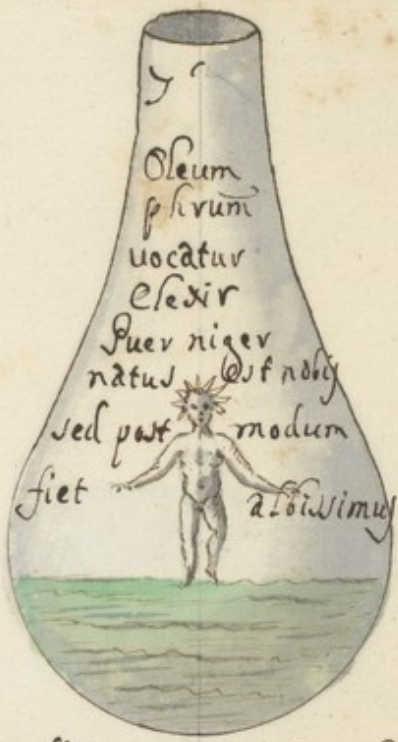 7
Oleum
phrum̄
vocatur
Elexir
Puer niger
natus Est nobis
sed post modum
fiet albissimus